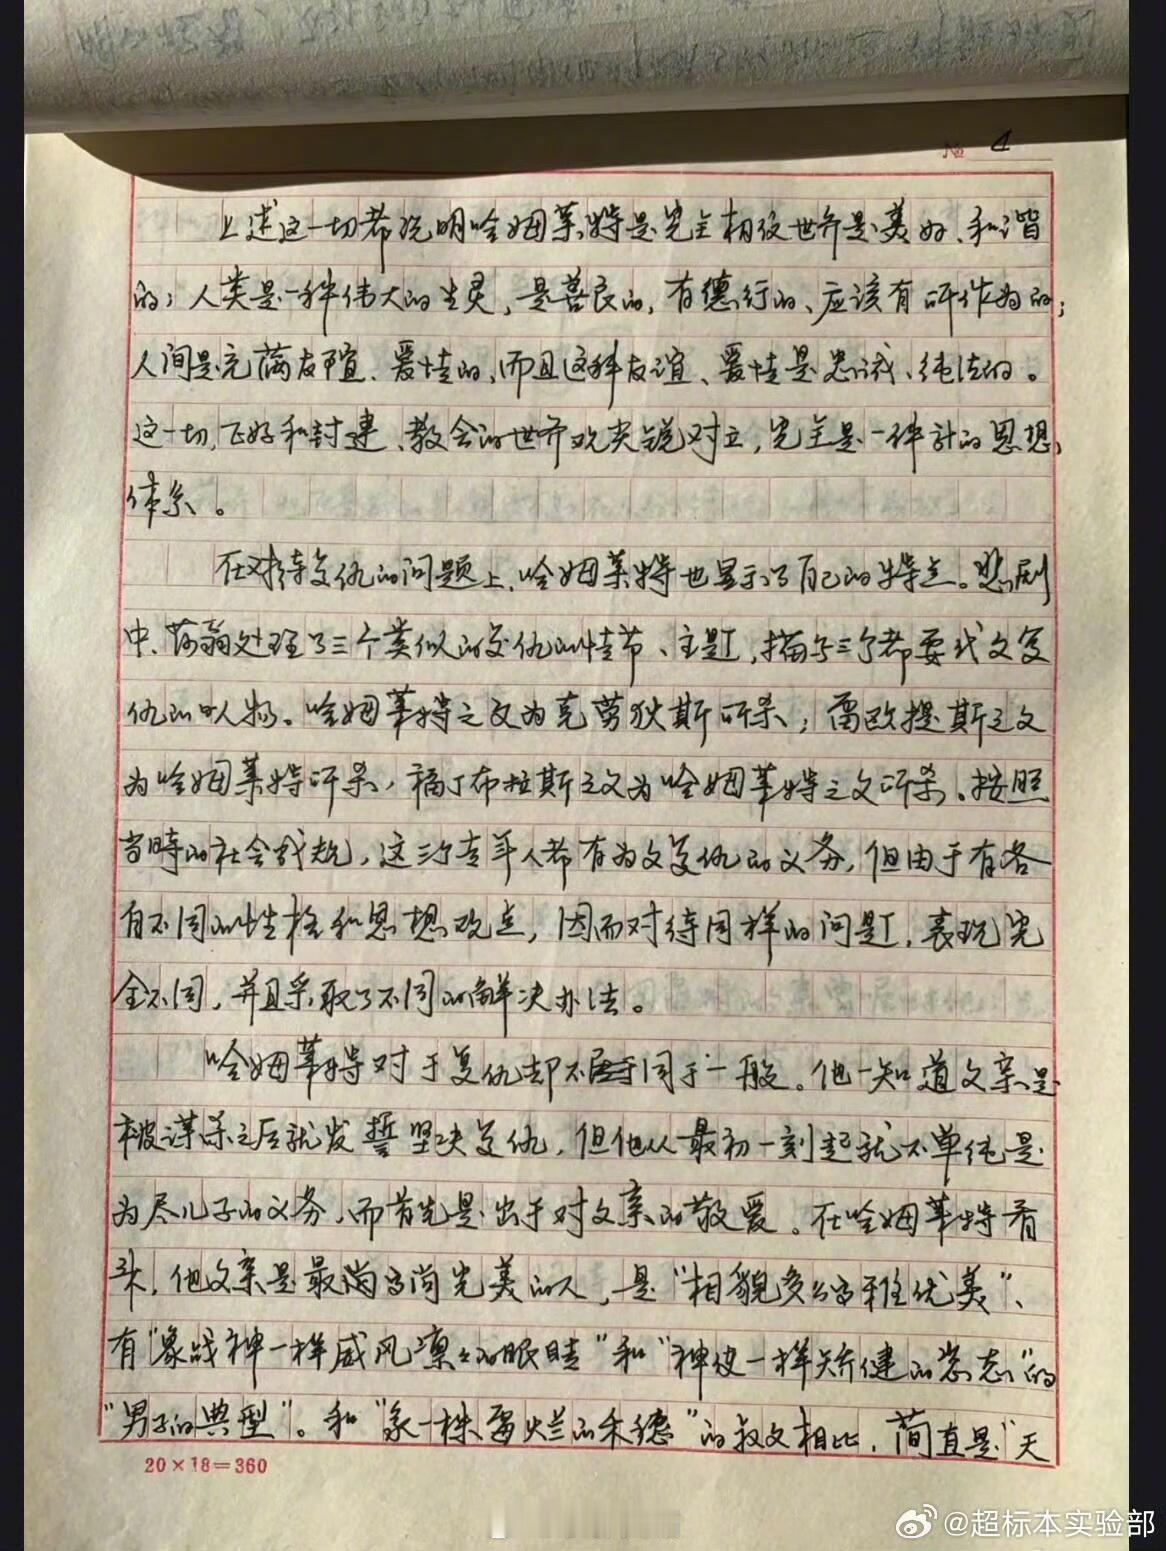 № 4
上述这一切都说明哈姆莱特是完全相信世界是美好、和谐
的；人类是一种伟大的生灵，是善良的，有德行的、应该有所作为的；
人间是充满友谊、爱情的，而且这种友谊、爱情是忠诚、纯洁的。
这一切，正好和封建、教会的世界观尖锐对立，完全是一种新的思想
体系。
在对待复仇的问题上，哈姆莱特也显示了自己的特点。悲剧
中，莎翁处理了三个类似的复仇的情节、主题，描写三个都要代父复
仇的人物。哈姆莱特之父为克劳狄斯所杀；雷欧提斯之父
为哈姆莱特所杀，福丁布拉斯之父为哈姆莱特之父所杀。按照
当時的社会成规，这三个青年人都有为父复仇的义务，但由于有各
有不同的性格和思想观点，因而对待同样的问题，表现完
全不同，并且采取了不同的解决办法。
哈姆莱特对于复仇却不同于一般。他一知道父亲是
被谋杀之后就发誓坚决复仇，但他从最初一刻起就不单纯是
为尽儿子的义务，而首先是出于对父亲的敬爱。在哈姆莱特看
来，他父亲是最高尚完美的人，是“相貌多么高雅优美”、
有“象战神一样威风凛凛的眼睛”和“神使一样矫健的姿态”的
“男子的典型”。和“象一株霉烂的禾穗”的叔父相比，简直是“天
20×18=360
@超标本实验部